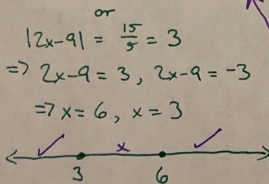 or
|2x-9| = 15/5 = 3
=> 2x-9 = 3, 2x-9 = -3
=> x = 6, x = 3
✓ x ✓
3 6